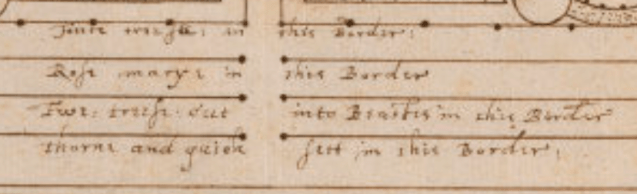 in this Border:
Rose marye in this Border
cut into Beastes in this Border
thorne and quick sett in this Border: